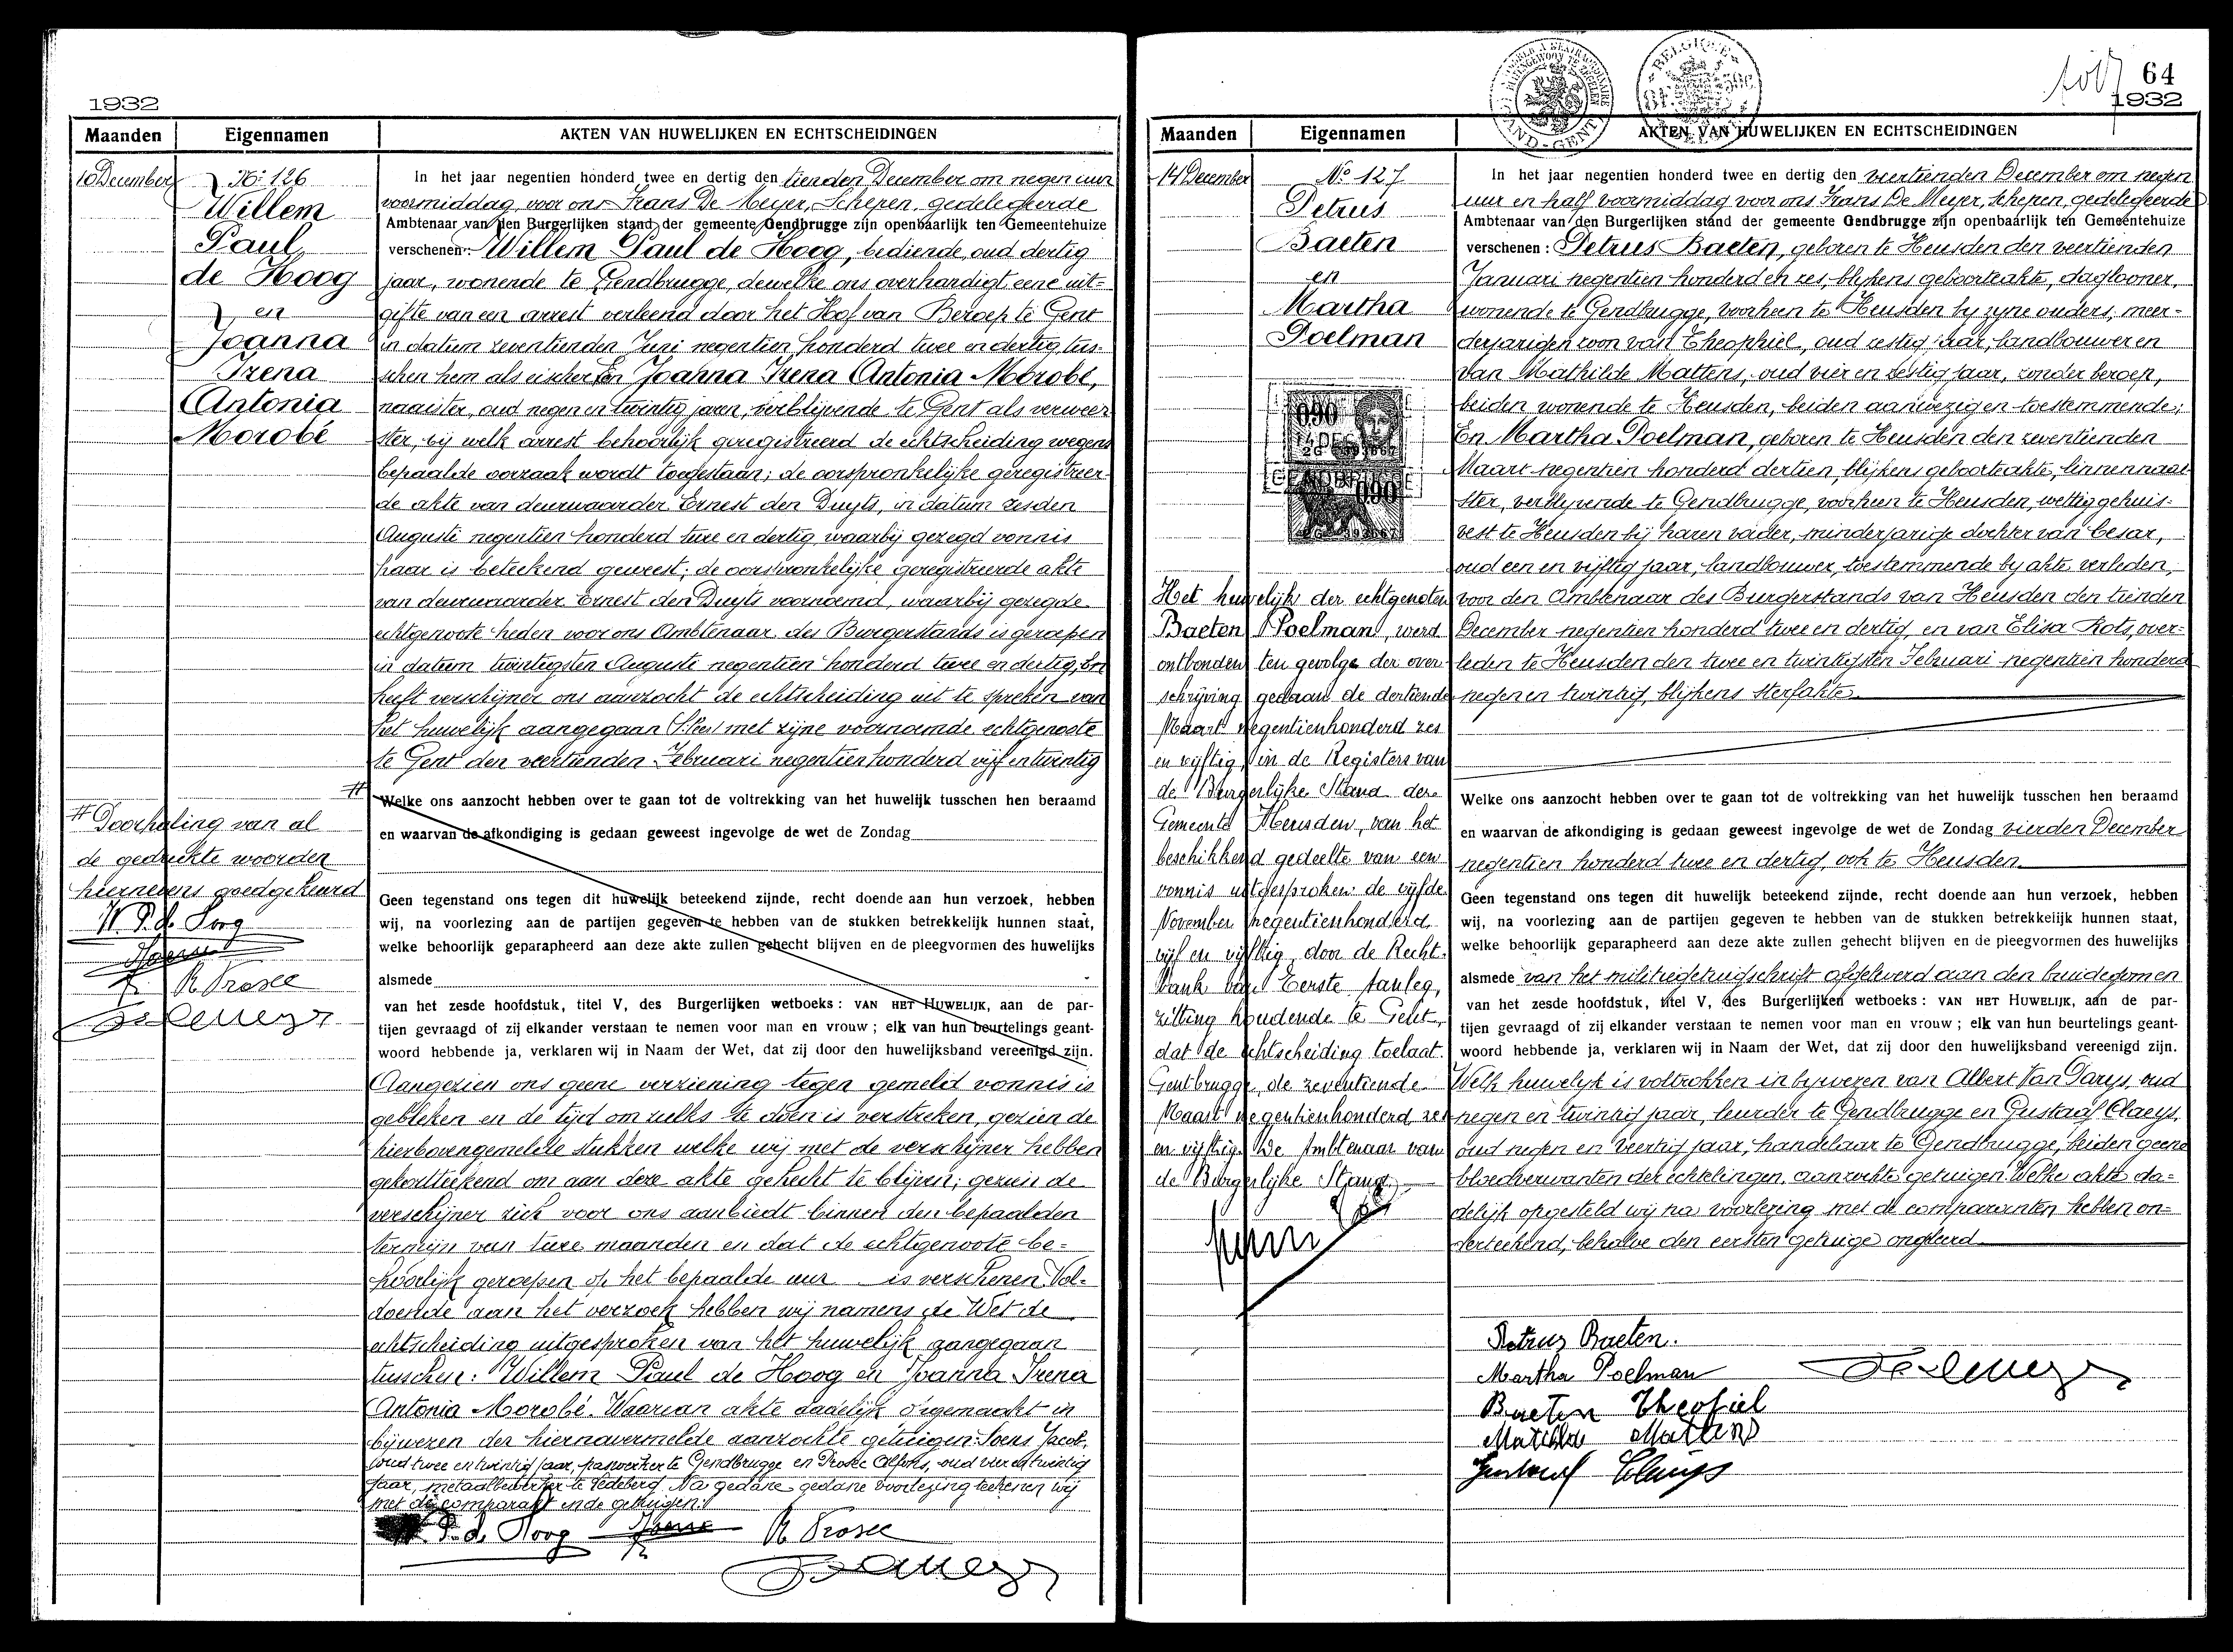 1932
Maanden Eigennamen AKTEN VAN HUWELIJKEN EN ECHTSCHEIDINGEN
10 December
No: 126
Willem
Paul
de Hoog
en
Joanna
Irena
Antonia
Morobé
In het jaar negentien honderd twee en dertig den tienden December om negen uur
voormiddag, voor ons Frans De Meyer, Schepen, gedelegeerde
Ambtenaar van den Burgerlijken stand der gemeente Gendbrugge zijn openbaarlijk ten Gemeentehuize
verschenen: Willem Paul de Hoog, bediende, oud dertig
jaar, wonende te Gendbrugge, dewelke ons overhandigt eene uit=
gifte van een arrest verleend door het Hof van Beroep te Gent
in datum zeventienden Juni negentien honderd twee en dertig, tus-
schen hem als eischer En Joanna Irena Antonia Morobé,
naaister, oud negen en twintig jaren, verblijvende te Gent als verweer
ster, bij welk arrest behoorlijk geregistreerd de echtscheiding wegens
bepaalde oorzaak wordt toegestaan; de oorspronkelijke geregistreer-
de akte van deurwaarder Ernest den Duyts, in datum zesden
Augusti negentien honderd twee en dertig, waarbij gezegd vonnis
haar is beteekend geweest; de oorspronkelijke geregistreerde akte
van deurwaarder Ernest den Duyts voornoemd, waarbij gezegde
echtgenoote heden voor ons Ambtenaar des Burgerstands is geroepen
in datum twintigsten Augusti negentien honderd twee en dertig, En
heeft verschijner ons aanzocht de echtscheiding uit te spreken van
het huwelijk aangegaan met zijne voornoemde echtgenoote
te Gent den veertienden Februari negentien honderd vijf en twintig
#
Welke ons aanzocht hebben over te gaan tot de voltrekking van het huwelijk tusschen hen beraamd
en waarvan de afkondiging is gedaan geweest ingevolge de wet de Zondag
Geen tegenstand ons tegen dit huwelijk beteekend zijnde, recht doende aan hun verzoek, hebben
wij, na voorlezing aan de partijen gegeven te hebben van de stukken betrekkelijk hunnen staat,
welke behoorlijk geparapheerd aan deze akte zullen gehecht blijven en de pleegvormen des huwelijks
alsmede
van het zesde hoofdstuk, titel V, des Burgerlijken wetboeks: VAN HET HUWELIJK, aan de par-
tijen gevraagd of zij elkander verstaan te nemen voor man en vrouw; elk van hun beurtelings geant-
woord hebbende ja, verklaren wij in Naam der Wet, dat zij door den huwelijksband vereenigd zijn.
# Doorhaling van al
de gedrukte woorden
hiernevens goedgekeurd
W. P. de Hoog
Soens
R Prosec
De Meyer
Aangezien ons geene verziening tegen gemeld vonnis is
gebleken en de tijd om zulks te doen is verstreken, gezien de
hierbovengemelde stukken welke wij met de verschijner hebben
gekortteekend om aan deze akte gehecht te blijven; gezien de
verschijner zich voor ons aanbiedt binnen den bepaalden
termijn van twee maanden en dat de echtgenoote be=
hoorlijk geroepen op het bepaalde uur is verschenen. Vol-
doende aan het verzoek hebben wij namens de Wet de
echtscheiding uitgesproken van het huwelijk aangegaan
tusschen: Willem Paul de Hoog en Joanna Irena
Antonia Morobé. Waarvan akte dadelijk opgemaakt in
bijwezen der hiernavermelde aanzochte getuigen: Soens Jacob,
oud twee en twintig jaar, paswerker te Gendbrugge en Alfons, oud vier en twintig
jaar, metaalbewerker te Ledeberg. Na gedane gedane voorlezing teekenen wij
met de comparant en de getuigen.
P. de Hoog Soens R Prosec
De Meyer
64
1932
Maanden Eigennamen AKTEN VAN HUWELIJKEN EN ECHTSCHEIDINGEN
14 December
No 127
Petrus
Baeten
en
Martha
Poelman
In het jaar negentien honderd twee en dertig den veertienden December om negen
uur en half voormiddag voor ons Frans De Meyer, schepen, gedelegeerde
Ambtenaar van den Burgerlijken stand der gemeente Gendbrugge zijn openbaarlijk ten Gemeentehuize
verschenen: Petrus Baeten, geboren te Heusden den veertienden
Januari negentien honderd en zes, blijkens geboorteakte, daglooner,
wonende te Gendbrugge, voorheen te Heusden by zyne ouders, meer-
derjarigen zoon van Theophiel, oud zestig jaar, landbouwer en
van Mathilde Mattens, oud vier en zestig jaar, zonder beroep,
beiden wonende te Heusden, beiden aanwezig en toestemmende;
En Martha Poelman, geboren te Heusden den zeventienden
Maart negentien honderd dertien, blijkens geboorteakte, linnennaai-
ster, verblyvende te Gendbrugge, voorheen te Heusden, wettig gehuis-
vest te Heusden bij haren vader, minderjarige dochter van Cesar,
oud een en vijftig jaar, landbouwer, toestemmende by akte verleden,
voor den Ambtenaar des Burgerstands van Heusden den tienden
December negentien honderd twee en dertig, en van Elisa Rots, over-
leden te Heusden den twee en twintigsten Februari negentien honderd
negen en twintig, blijkens sterfakte
Welke ons aanzocht hebben over te gaan tot de voltrekking van het huwelijk tusschen hen beraamd
en waarvan de afkondiging is gedaan geweest ingevolge de wet de Zondag vierden December
negentien honderd twee en dertig, ook te Heusden
Geen tegenstand ons tegen dit huwelijk beteekend zijnde, recht doende aan hun verzoek, hebben
wij, na voorlezing aan de partijen gegeven te hebben van de stukken betrekkelijk hunnen staat,
welke behoorlijk geparapheerd aan deze akte zullen gehecht blijven en de pleegvormen des huwelijks
alsmede van het militiegetuigschrift afgeleverd aan den bruidegomen
van het zesde hoofdstuk, titel V, des Burgerlijken wetboeks: VAN HET HUWELIJK, aan de par-
tijen gevraagd of zij elkander verstaan te nemen voor man en vrouw; elk van hun beurtelings geant-
woord hebbende ja, verklaren wij in Naam der Wet, dat zij door den huwelijksband vereenigd zijn.
Welk huwelyk is voltrokken in bywezen van Albert Van Parys, oud
negen en twintig jaar, leurder te Gendbrugge en Gustaaf Claeys,
oud negen en veertig jaar, handelaar te Gendbrugge, beiden geene
bloedverwanten der echtelingen, aanzochte getuigen. Welke akte da=
delijk opgesteld wij na voorlezing met de comparanten hebben on=
derteekend, behalve den eersten getuige ongeleerd
Het huwelijk der echtgenoten
Baeten Poelman, werd
ontbonden ten gevolge der over
schrijving gedaan de dertiende
Maart negentienhonderd zes
en vijftig, in de Registers van
de Burgerlijke Stand der
Gemeente Heusden, van het
beschikkend gedeelte van een
vonnis uitgesproken de vijfde
November negentienhonderd
vijf en vijftig, door de Recht-
bank van Eerste Aanleg,
zitting houdende te Gent,
dat de echtscheiding toelaat.
Gentbrugge, de zeventiende
Maart negentienhonderd zes
en vijftig. De Ambtenaar van
de Burgerlijke Stand,
Petrus Baeten.
Martha Poelman
De Meyer
Baeten Theofiel
Matilde Mattens
Gustaaf Claeys